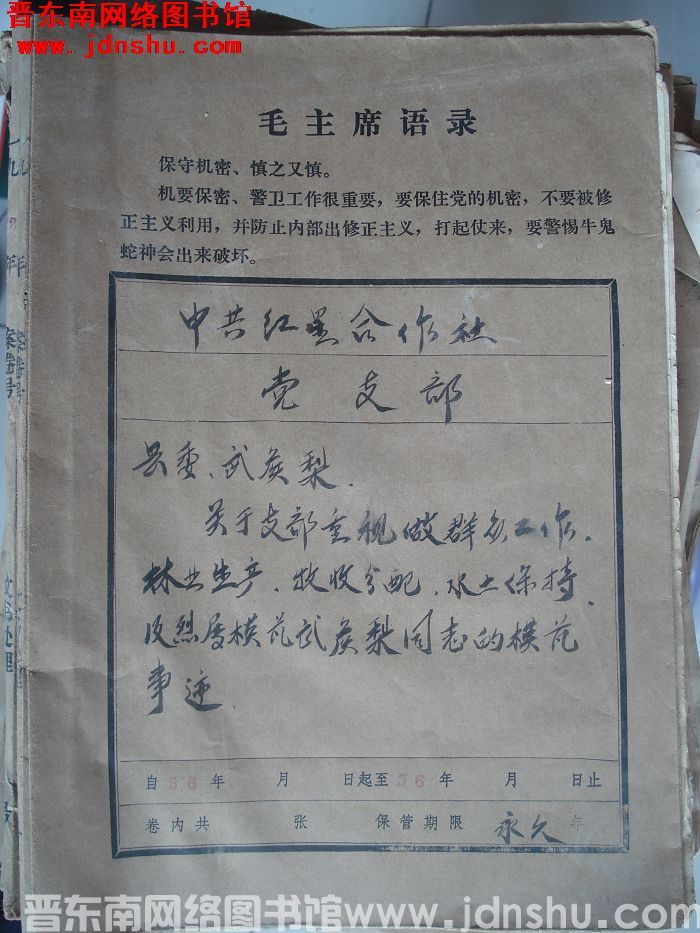 晋东南网络图书馆
www.jdnshu.com
毛主席语录
保守机密、慎之又慎。
机要保密、警卫工作很重要，要保住党的机密，不要被修
正主义利用，并防止内部出修正主义，打起仗来，要警惕牛鬼
蛇神会出来破坏。
中共红星合作社
党支部
县委、武侯梨.
关于支部重视做群众工作、
林业生产、牧收分配、水土保持、
及烈属模范武侯梨同志的模范
事迹
自56年 月 日起至56年 月 日止
卷内共 张 保管期限 永久 年
晋东南网络图书馆www.jdnshu.com